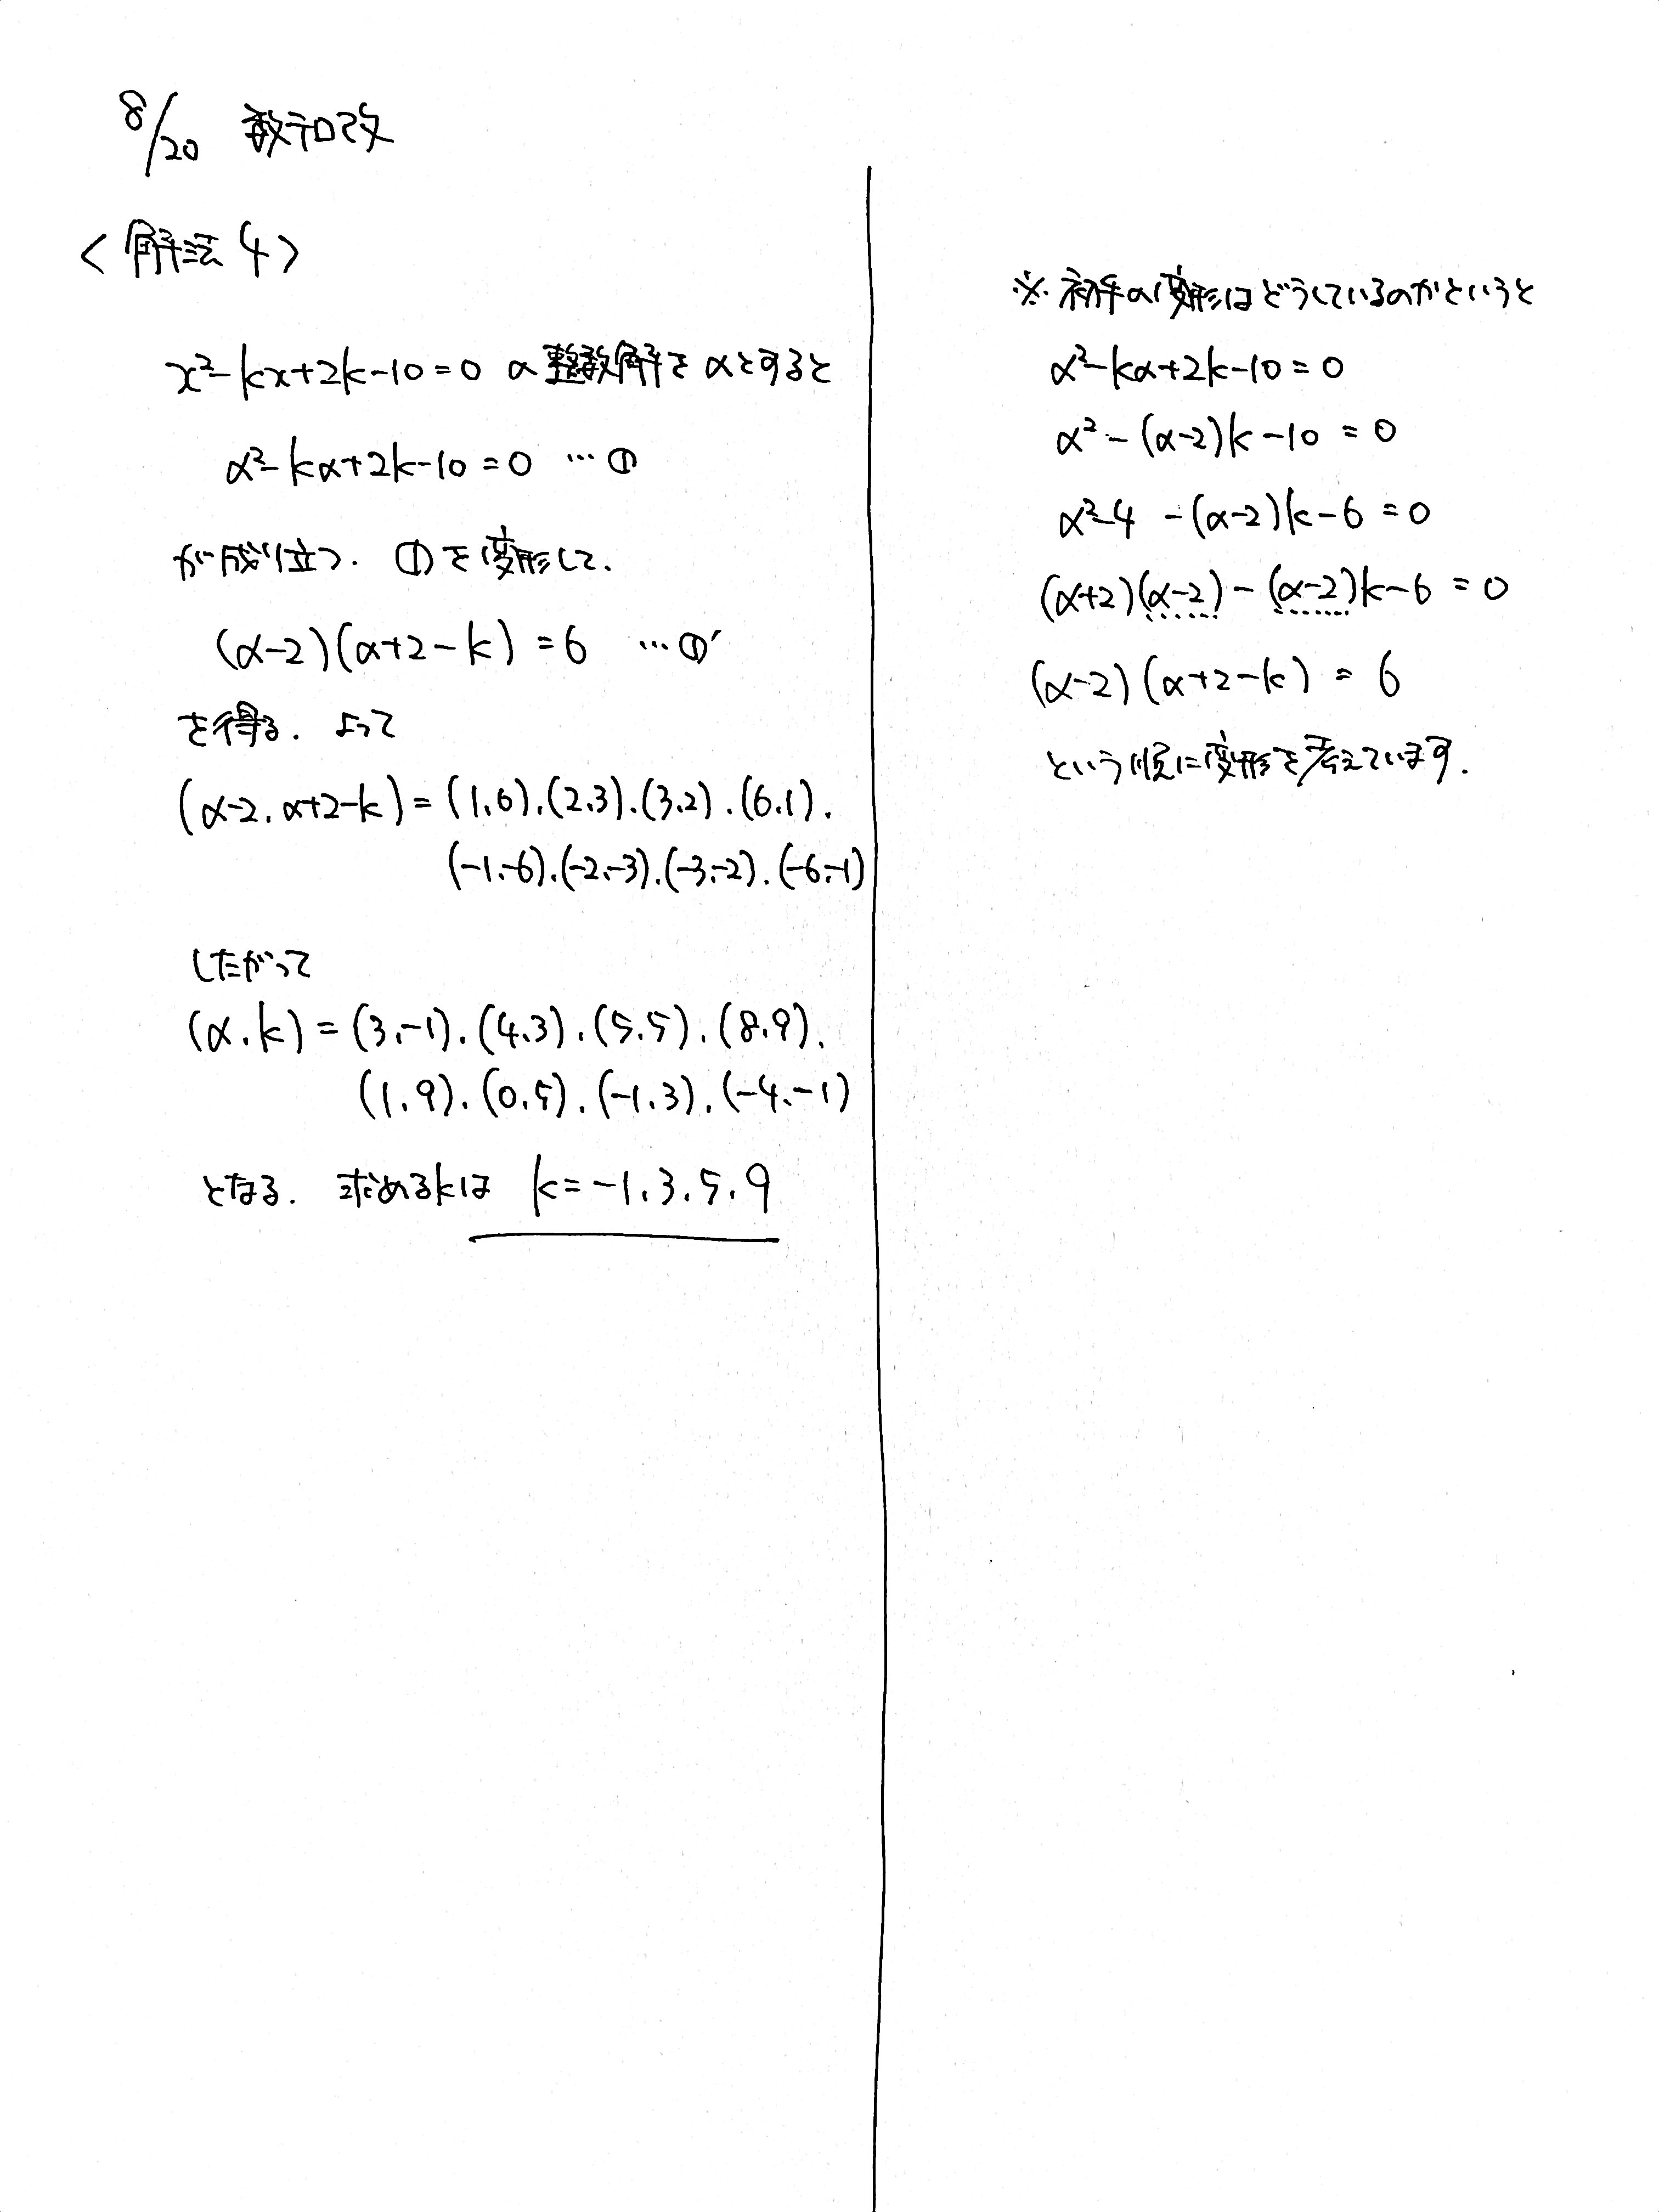 8/20 数テロ改
<解法4>
x²-kx+2k-10=0 の整数解をαとすると
α²-kα+2k-10=0 …①
が成り立つ. ①を変形して,
(α-2)(α+2-k)=6 …①'
を得る. よって
(α-2, α+2-k)=(1,6),(2,3),(3,2),(6,1),
(-1,-6),(-2,-3),(-3,-2),(-6,-1)
したがって
(α,k)=(3,-1),(4,3),(5,5),(8,9),
(1,9),(0,5),(-1,3),(-4,-1)
となる. 求めるkは k=-1,3,5,9
※ 初手の変形はどうしているのかというと
α²-kα+2k-10=0
α²-(α-2)k-10=0
α²-4-(α-2)k-6=0
(α+2)(α-2)-(α-2)k-6=0
(α-2)(α+2-k)=6
という順に変形を考えています.